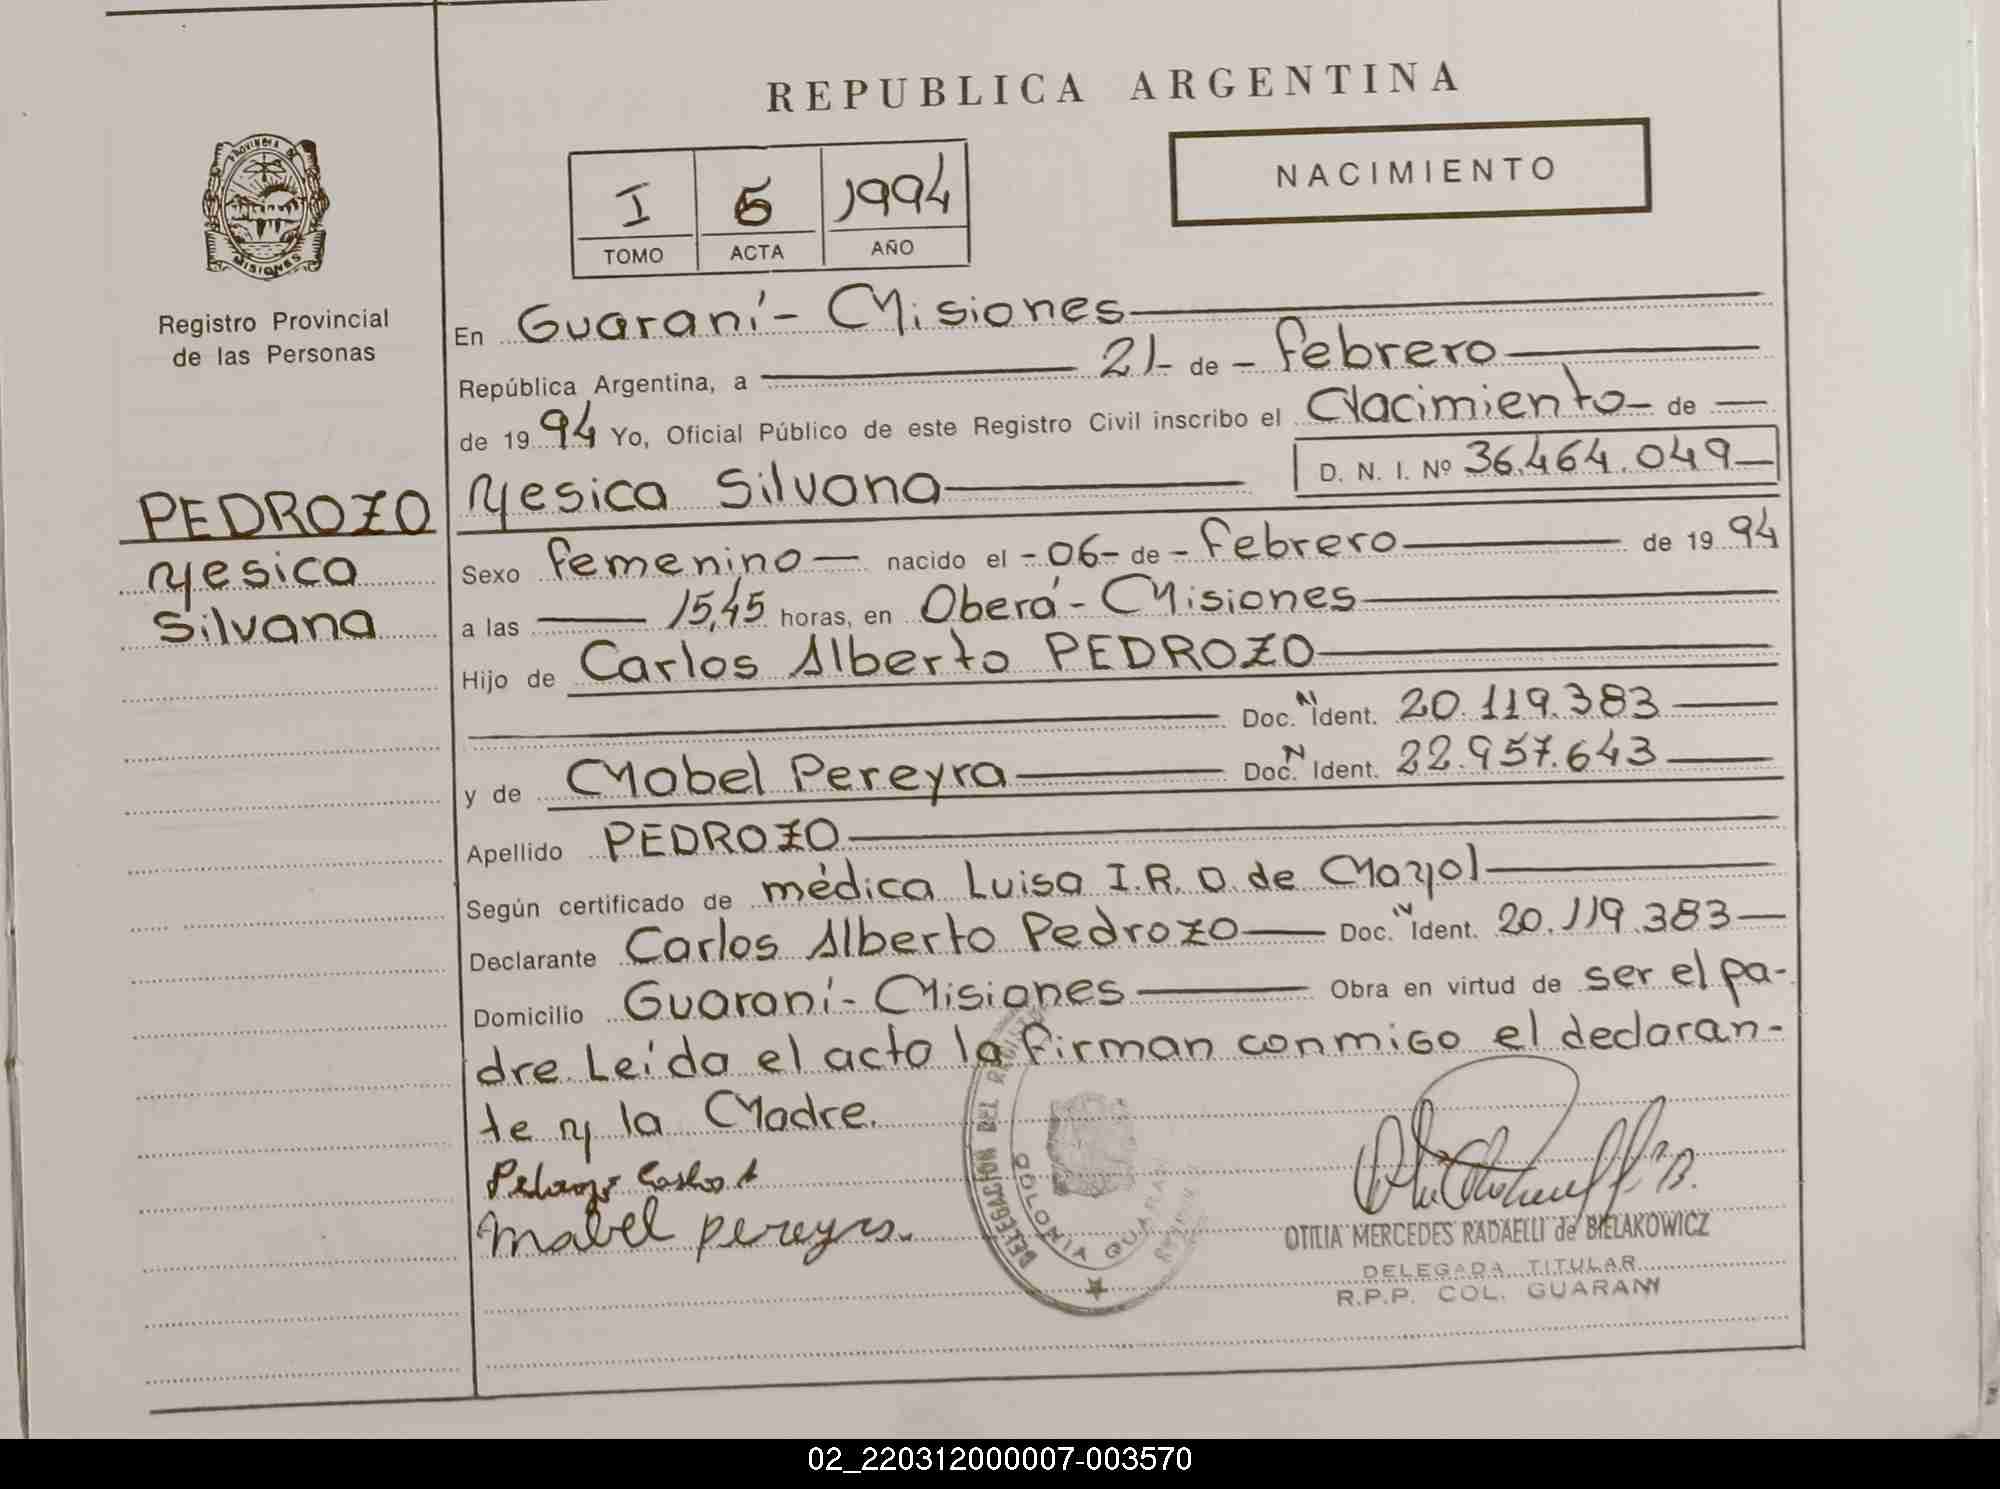 REPUBLICA ARGENTINA
PROVINCIA DE
MISIONES
Registro Provincial
de las Personas
I 5 1994
TOMO ACTA AÑO
NACIMIENTO
PEDROZO
Yesica
Silvana
En Guaraní - Misiones
República Argentina, a 21- de - febrero
de 1994 Yo, Oficial Público de este Registro Civil inscribo el Nacimiento- de —
Yesica Silvana D. N. I. Nº 36.464.049
Sexo femenino — nacido el - 06 - de - febrero de 1994
a las 15,45 horas, en Oberá - Misiones
Hijo de Carlos Alberto PEDROZO
Doc. N Ident. 20.119.383
y de Mabel Pereyra Doc. N Ident. 22.957.643
Apellido PEDROZO
Según certificado de médica Luisa I.R.O. de Mayol
Declarante Carlos Alberto Pedrozo Doc. N Ident. 20.119.383
Domicilio Guaraní - Misiones Obra en virtud de ser el pa-
dre. Leída el acto la firman conmigo el declaran-
te y la Madre.
Mabel pereyra.
DELEGACION DEL REGISTRO
COLONIA GUARANI
OTILIA MERCEDES RADAELLI de BIELAKOWICZ
DELEGADA TITULAR
R.P.P. COL. GUARANI
02_220312000007-003570